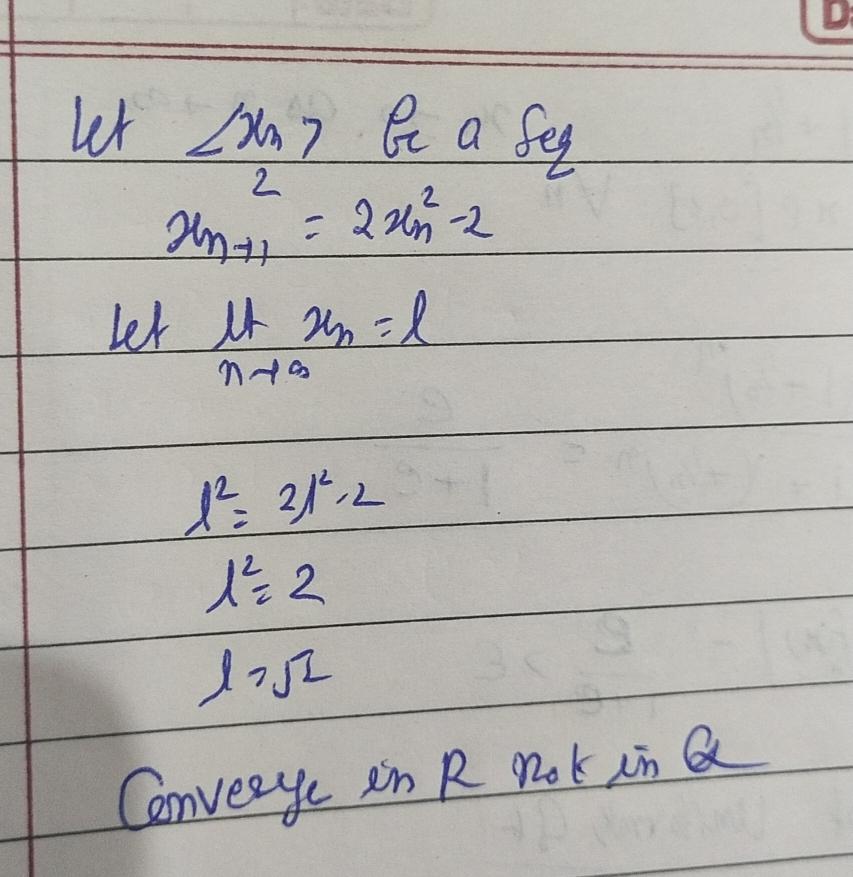 Let <xn> be a Seq
xn+1² = 2xn² - 2
Let lt xn = l
n→∞
l² = 2l² - 2
l² = 2
l = √2
Converge in R not in Q